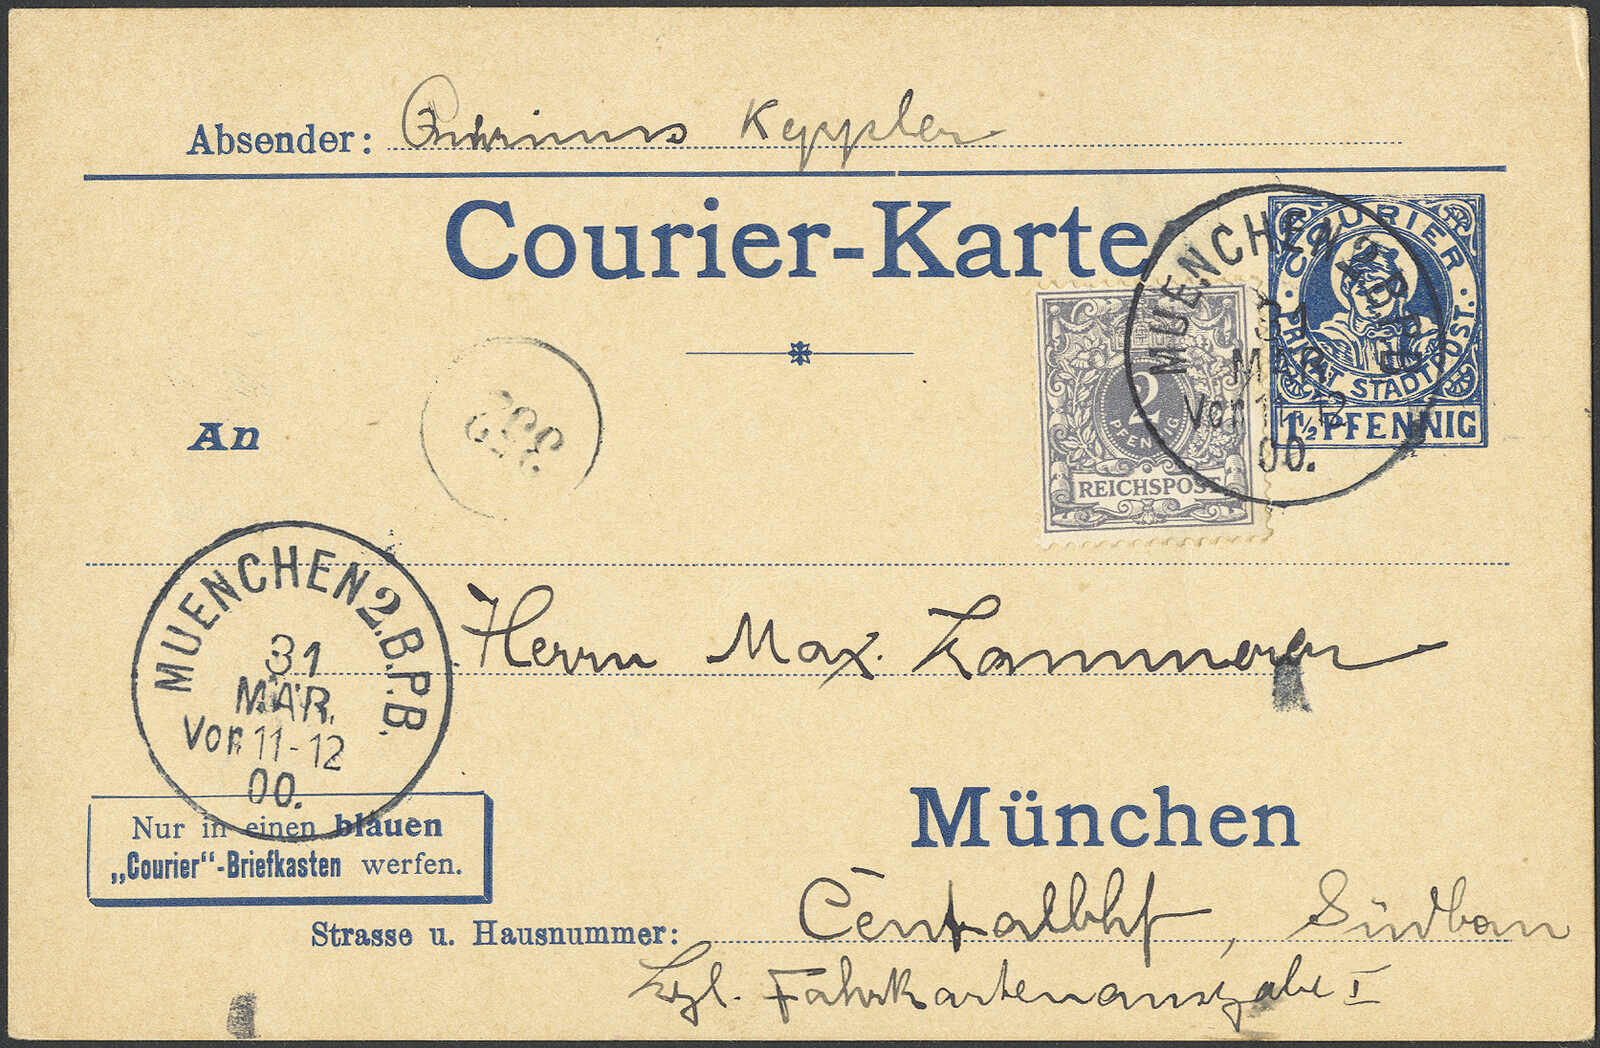 Absender: Keppler
Courier-Karte
COURIER
PRIVAT STADTPOST.
1½ PFENNIG
2
PFENNIG
REICHSPOST
MUENCHEN 2.B.P.B.
31
MAR.
Vor. 11-12
00.
An
MUENCHEN 2.B.P.B.
31
MAR.
Vor. 11-12
00.
Herrn Max. Kammerer
München
Nur in einen blauen
„Courier“-Briefkasten werfen.
Strasse u. Hausnummer: Centralbhf, Südbau
kgl. Fahrkartenausgabe I